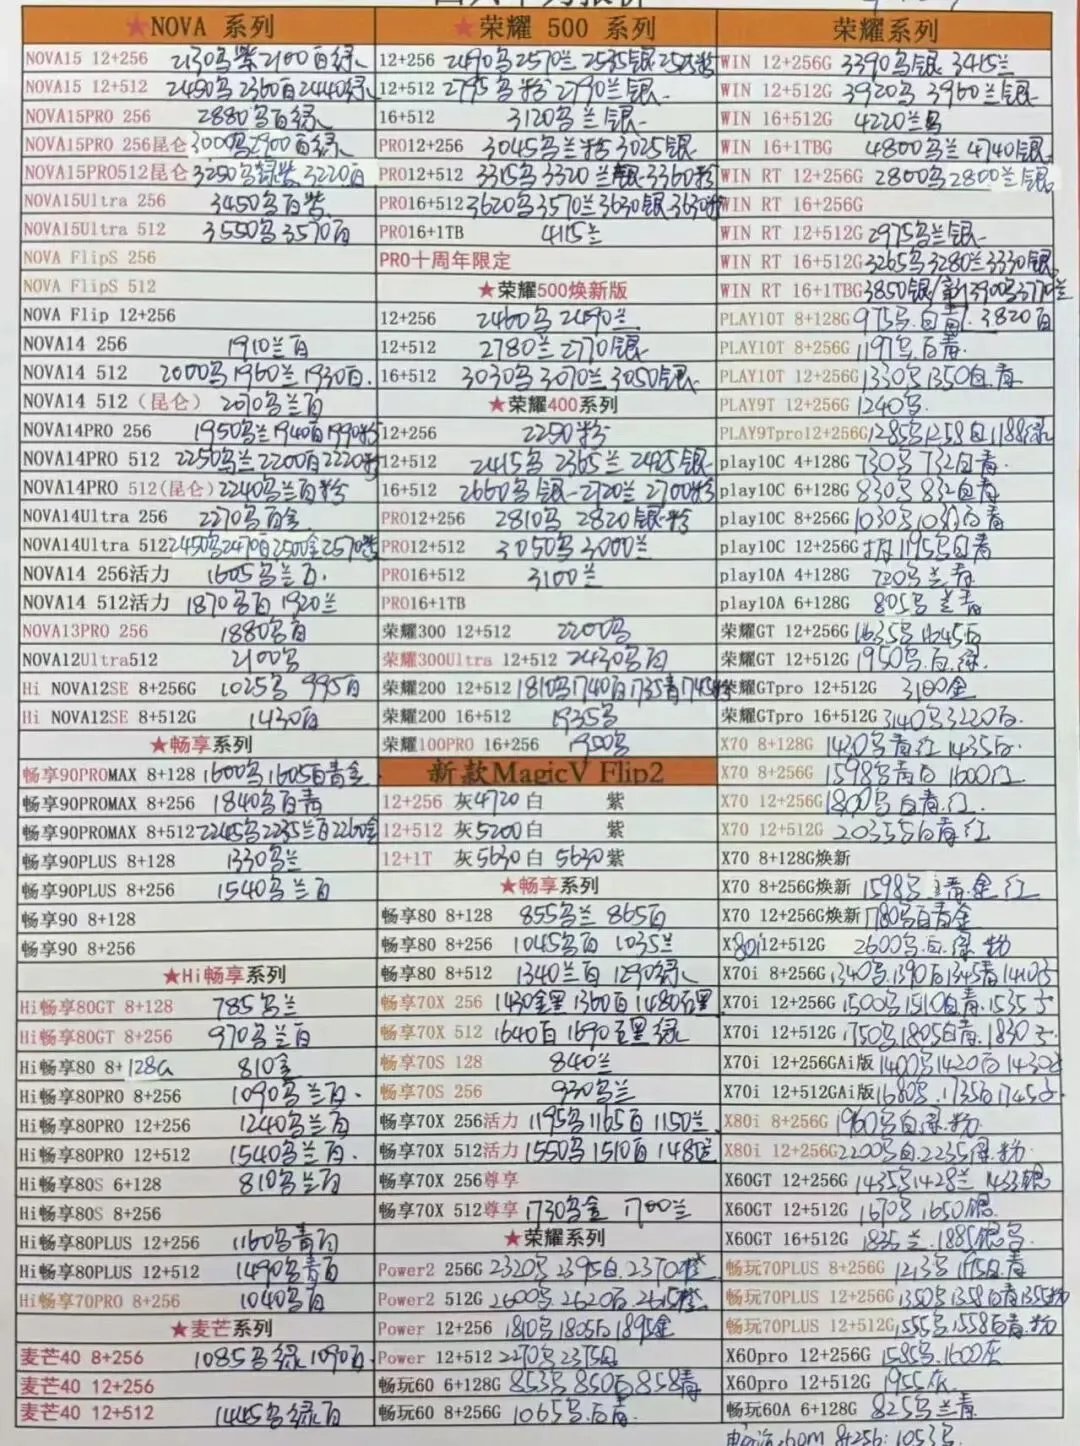 ★NOVA 系列
NOVA15 12+256 2130乌紫2100百绿
NOVA15 12+512 2490乌2360百2440绿
NOVA15PRO 256 2880乌百绿
NOVA15PRO 256昆仑 3000乌2900百绿
NOVA15PRO512昆仑 3250乌绿紫 3220百
NOVA15Ultra 256 3450乌百紫
NOVA15Ultra 512 3550乌3570百
NOVA FlipS 256
NOVA FlipS 512
NOVA Flip 12+256
NOVA14 256 1910兰百
NOVA14 512 2000乌1960兰1930百.
NOVA14 512(昆仑) 2070乌兰百
NOVA14PRO 256 1950乌兰1940百1990粉
NOVA14PRO 512 2250乌兰2200百2220粉
NOVA14PRO 512(昆仑) 2240乌兰百粉
NOVA14Ultra 256 2270乌百金
NOVA14Ultra 512 2450乌2470百2500金2570紫
NOVA14 256活力 1605乌兰百.
NOVA14 512活力 1870乌百 1920兰
NOVA13PRO 256 1880乌百
NOVA12Ultra512 2100乌
Hi NOVA12SE 8+256G 1025乌 995百
Hi NOVA12SE 8+512G 1430百
★畅享系列
畅享90PROMAX 8+128 1600乌1605百青金
畅享90PROMAX 8+256 1840乌百青
畅享90PROMAX 8+512 2245乌2235兰百2260金
畅享90PLUS 8+128 1330乌兰
畅享90PLUS 8+256 1540乌兰百
畅享90 8+128
畅享90 8+256
★Hi畅享系列
Hi畅享80GT 8+128 785乌兰
Hi畅享80GT 8+256 970乌兰百
Hi畅享80 8+128G 810金
Hi畅享80PRO 8+256 1090乌兰百.
Hi畅享80PRO 12+256 1240乌兰百
Hi畅享80PRO 12+512 1540乌兰百.
Hi畅享80S 6+128 810乌兰百
Hi畅享80S 8+256
Hi畅享80PLUS 12+256 1160乌青百
Hi畅享80PLUS 12+512 1490乌青百
Hi畅享70PRO 8+256 1040乌百
★麦芒系列
麦芒40 8+256 1085乌绿1090百.
麦芒40 12+256
麦芒40 12+512 1445乌绿百
★荣耀 500 系列
12+256 2490乌2570兰 2535银
12+512 2795乌粉2790兰银
16+512 3120乌兰银
PRO12+256 3045乌兰粉3025银
PRO12+512 3315乌3320兰银3360粉
PRO16+512 3620乌3570兰3630银3630粉
PRO16+1TB 4115兰
PRO十周年限定
★荣耀500焕新版
12+256 2460乌2490兰
12+512 2780兰2770银
16+512 3030乌3070兰3050银
★荣耀400系列
12+256 2250粉
12+512 2415乌 2365兰 2425银
16+512 2660乌银 2720兰 2700粉
PRO12+256 2810乌 2820银粉
PRO12+512 3050乌3000兰
PRO16+512 3100兰
PRO16+1TB
荣耀300 12+512 2200乌
荣耀300Ultra 12+512 2430乌百
荣耀200 12+512 1810乌1740百1735青1745粉
荣耀200 16+512 1935乌
荣耀100PRO 16+256 1900乌
新款MagicV Flip2
12+256 灰4720 白 紫
12+512 灰5200白 紫
12+1T 灰5630白 5630紫
★畅享系列
畅享80 8+128 855乌兰 865百
畅享80 8+256 1045乌百 1035兰
畅享80 8+512 1340兰百1290绿
畅享70X 256 1430金黑 1360百1480
畅享70X 512 1640百1690
畅享70S 128 840兰
畅享70S 256 930乌兰
畅享70X 256活力 1195乌1165百1150兰
畅享70X 512活力 1550乌1510百1480兰
畅享70X 256尊享
畅享70X 512尊享 1730乌金 1700兰
★荣耀系列
Power2 256G 2320乌2395白.2370橙
Power2 512G 2600乌.2620百.2615橙
Power 12+256 1810乌1805百1895金
Power 12+512 2270乌2375百
畅玩60 6+128G 853乌850百858青
畅玩60 8+256G 1065乌.百青.
荣耀系列
WIN 12+256G 3390乌银 3415兰
WIN 12+512G 3920乌3960兰银
WIN 16+512G 4220兰乌
WIN 16+1TBG 4800乌兰4740银
WIN RT 12+256G 2800乌2800兰银
WIN RT 16+256G
WIN RT 12+512G 2975乌兰银
WIN RT 16+512G 3265乌3280兰3330银
WIN RT 16+1TBG 3850银/新3900乌3770兰
PLAY10T 8+128G 975乌.白青. 3820百
PLAY10T 8+256G 1197乌.百青
PLAY10T 12+256G 1330乌1350白.青
PLAY9T 12+256G 1240乌.
PLAY9Tpro12+256G 1285乌1258白1188绿
play10C 4+128G 730乌732白青.
play10C 6+128G 830乌832白青
play10C 8+256G 1030乌1031百青
play10C 12+256G 1195乌白青
play10A 4+128G 720乌兰青
play10A 6+128G 805乌兰青
荣耀GT 12+256G 1635乌1645百
荣耀GT 12+512G 1950乌.百.绿.
荣耀GTpro 12+512G 3100金
荣耀GTpro 16+512G 3140乌3220百.
X70 8+128G 1430乌青红1435百.
X70 8+256G 1598乌青白1600红
X70 12+256G 1800乌白青.红.
X70 12+512G 2035乌白青红
X70 8+128G焕新
X70 8+256G焕新 1598乌 青.金.红
X70 12+256G焕新 1780乌白青金
X80i12+512G 2600乌.百.绿.粉
X70i 8+256G 1340乌.1390百1345青1410
X70i 12+256G 1500乌1510白青.1535
X70i 12+512G 1750乌1805白青.1830
X70i 12+256GAi版 1400乌1420百1430
X70i 12+512GAi版 1680乌.1735百1745
X80i 8+256G 1960乌白.绿.粉
X80i 12+256G 2200乌.白.2235绿.粉
X60GT 12+256G 1435乌1428兰1433银
X60GT 12+512G 1670乌1650银.
X60GT 16+512G 1835兰.1885银乌
畅玩70PLUS 8+256G 1213乌1195白.青
畅玩70PLUS 12+256G 1350乌1358白青1355粉
畅玩70PLUS 12+512G 1555乌.1558百青.粉
X60pro 12+256G 1585乌.1600灰
X60pro 12+512G 1955灰.
畅玩60A 6+128G 825乌兰青
60m 8+256: 1053乌